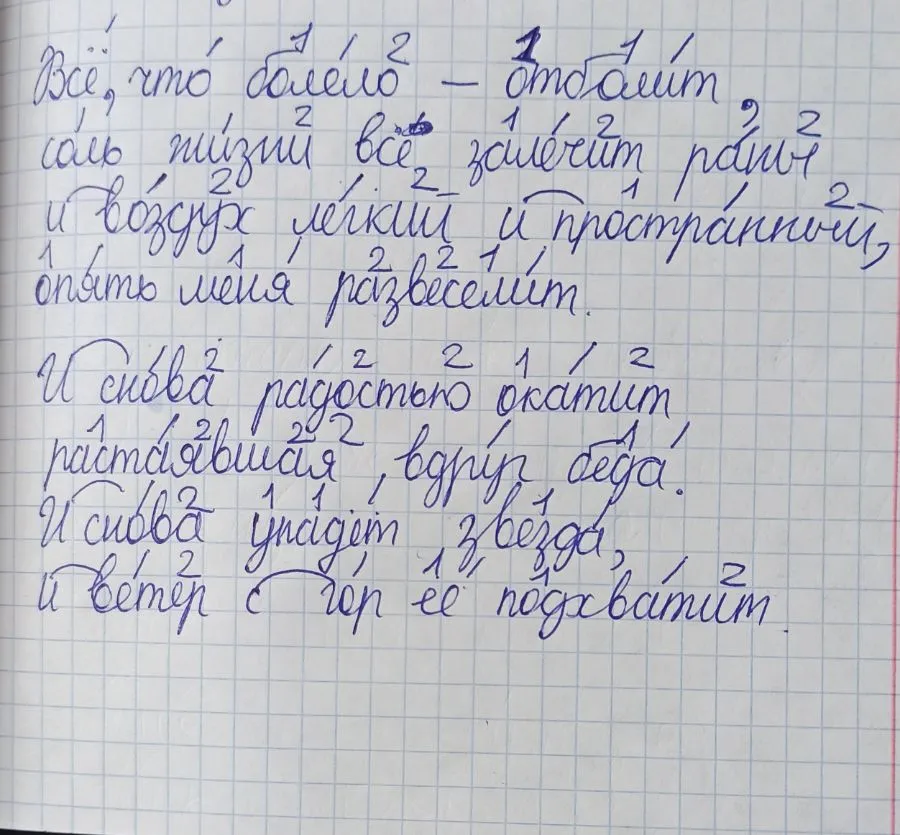 Всё, что болело – отболит,
соль жизни всё залечит раны
и воздух лёгкий и пространный,
опять меня развеселит.
И снова радостью окатит
растаявшая, вдруг беда.
И снова упадёт звезда,
и ветер с гор её подхватит.